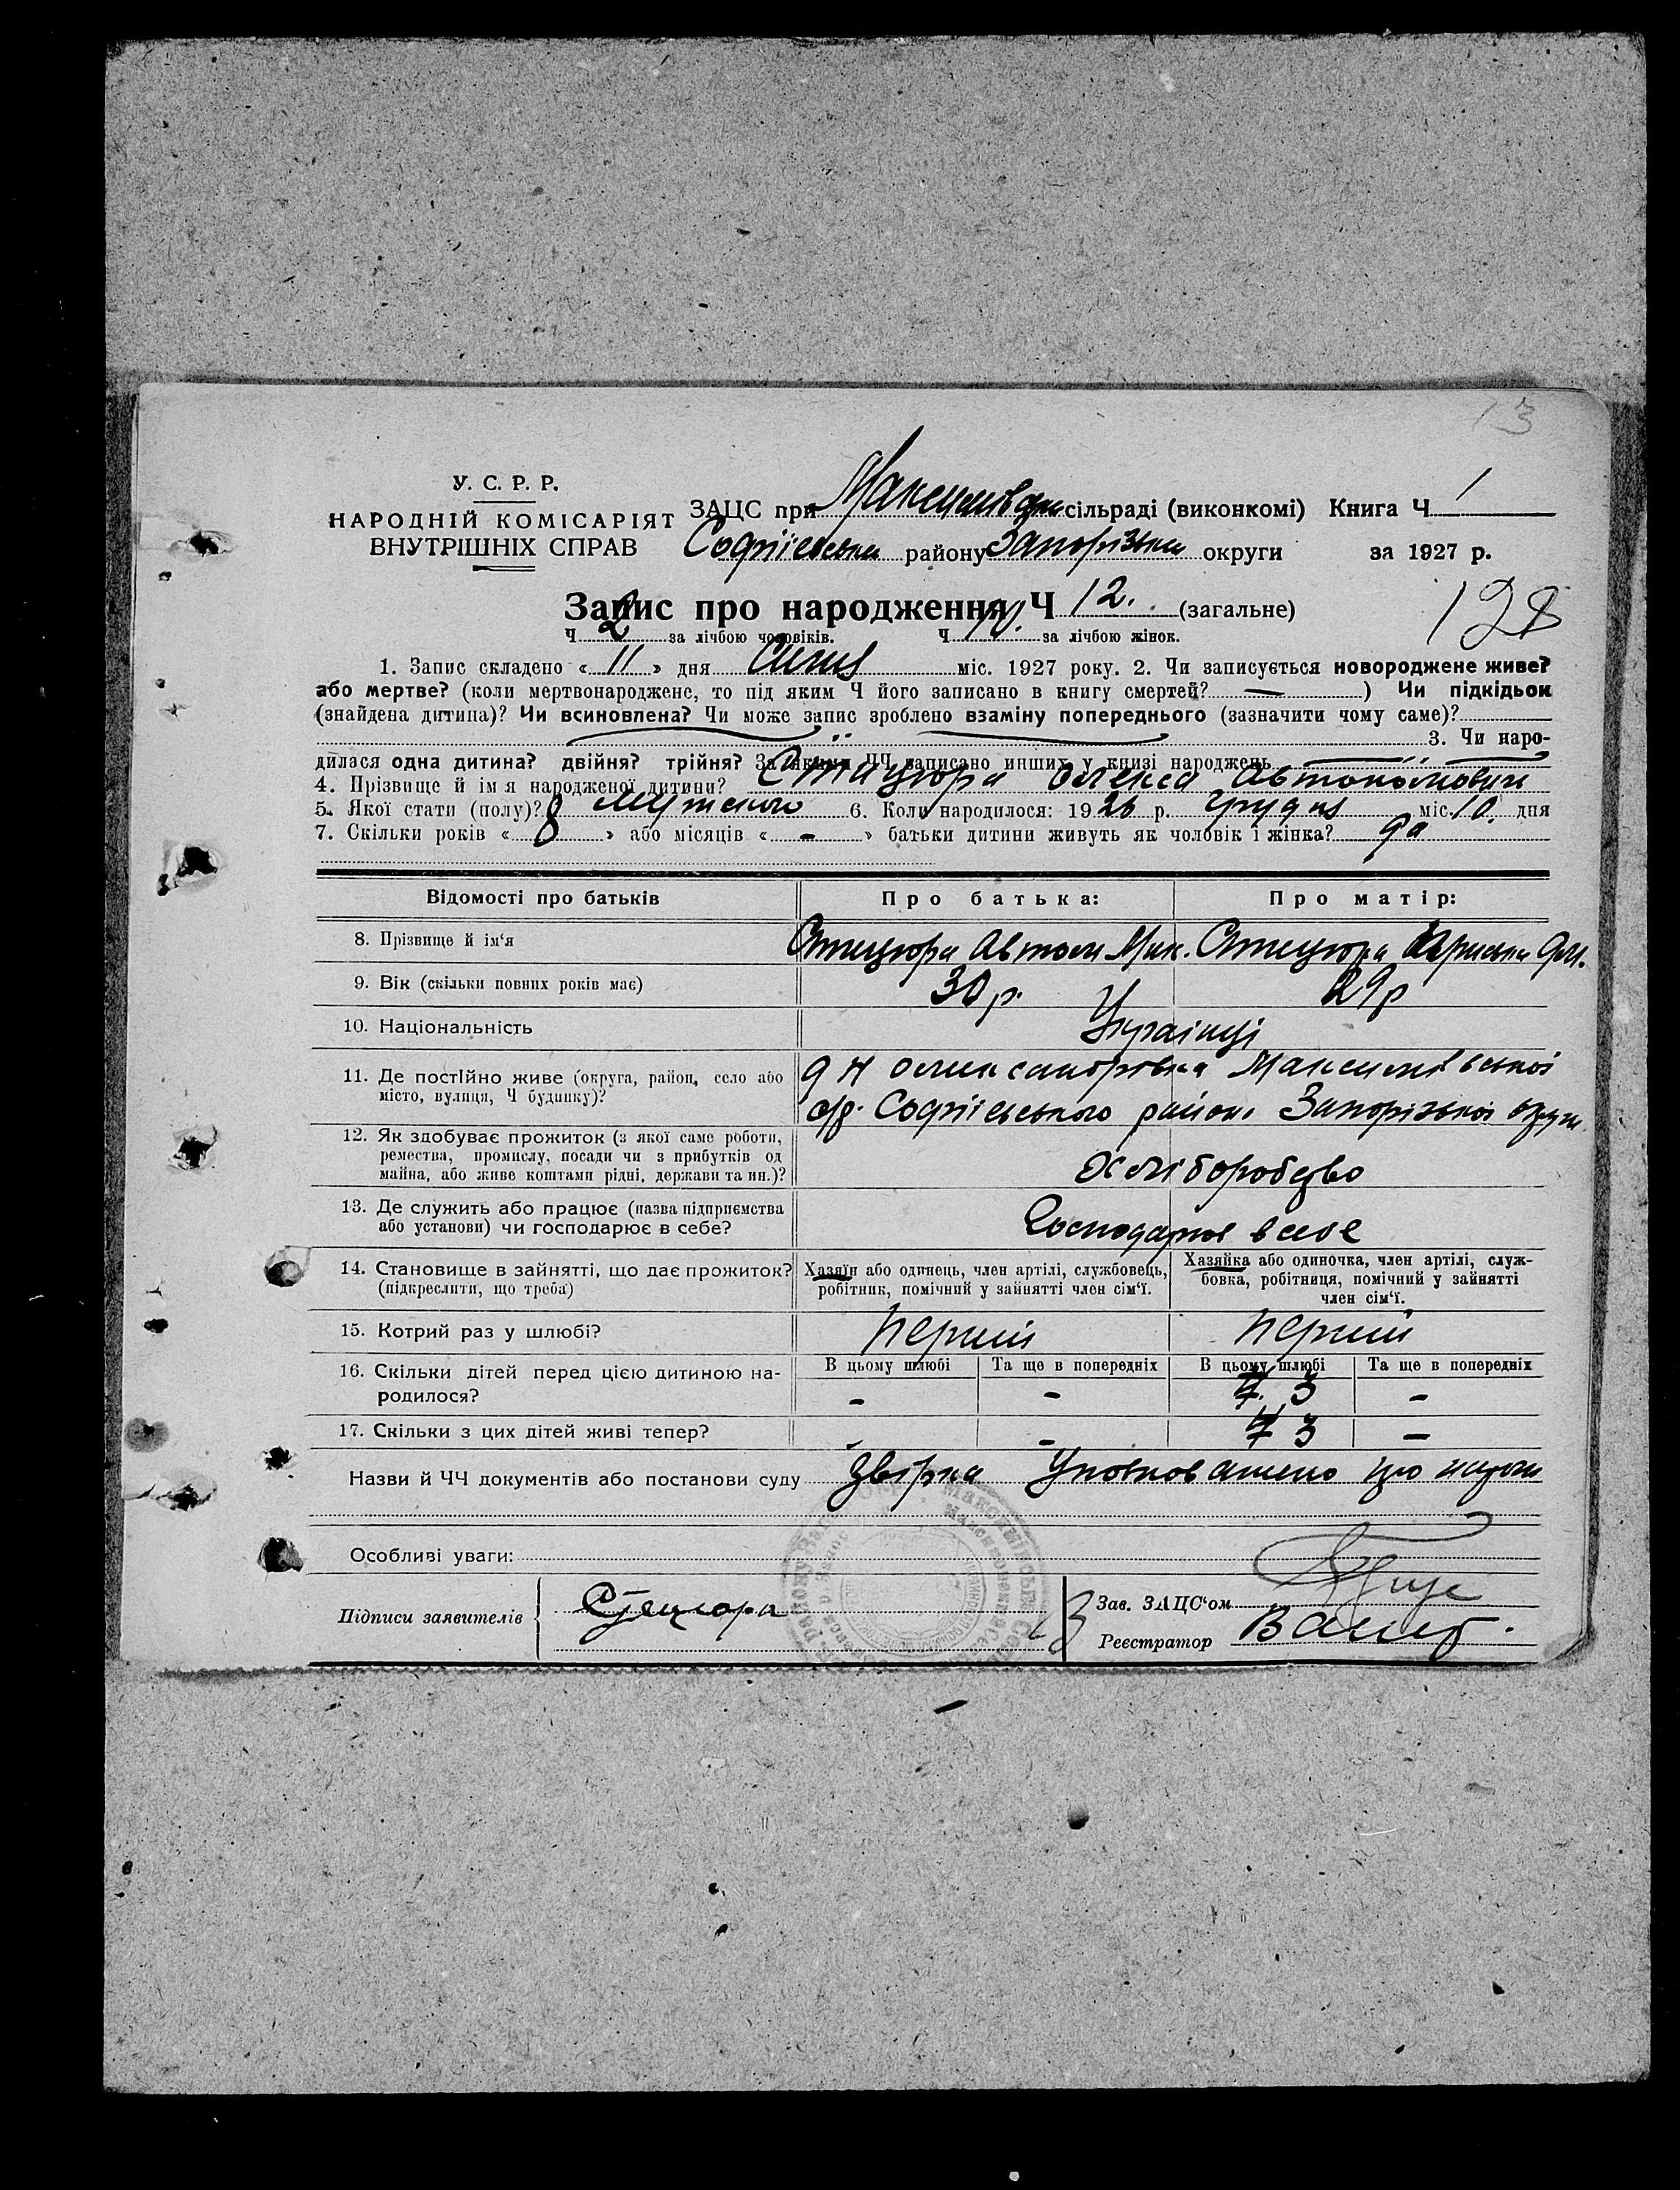 13
У. С. Р. Р.
НАРОДНІЙ КОМІСАРІЯТ
ВНУТРІШНІХ СПРАВ
ЗАЦС при сільраді (виконкомі) Книга Ч 1
Софіївськи району Запорізьки округи за 1927 р.
Запис про народження Ч 12. (загальне)
128
Ч 2 за лічбою чоловіків. Ч 10. за лічбою жінок.
1. Запис складено « 11 » дня Січня міс. 1927 року. 2. Чи записується новороджене живе?
або мертве? (коли мертвонароджене, то під яким Ч його записано в книгу смертей? — ) Чи підкідьок
(знайдена дитина)? Чи всиновлена? Чи може запис зроблено взаміну попереднього (зазначити чому саме)?
3. Чи наро-
дилася одна дитина? двійня? трійня? За якими ЧЧ записано инших у книзі народжень
4. Прізвище й імя народженої дитини? Стецюра Олекса Автономович
5. Якої стати (полу)? мужського 6. Коли народилося: 1926 р. Грудня міс. 10. дня
7. Скільки років « 8 » або місяців « - » батьки дитини живуть як чоловік і жінка? да
Відомості про батьків Про батька: Про матір:
8. Прізвище й ім'я Стецюра Автом Мик. Стецюра
9. Вік (скільки повних років має) 30 р. 29 р
10. Національність Українці
11. Де постійно живе (округа, район, село або
місто, вулиця, Ч будинку)?
Олександровка Максимівської
с/р. Софіївського району Запорізької округи
12. Як здобуває прожиток (з якої саме роботи,
ремества, промислу, посади чи з прибутків од
майна, або живе коштами рідні, держави та ин.)?
Хліборобство
13. Де служить або працює (назва підприємства
або установи) чи господарює в себе?
Господарює в себе
14. Становище в зайнятті, що дає прожиток?
(підкреслити, що треба)
Хазяїн або одинець, член артілі, службовець,
робітник, помічний у зайнятті член сім'ї.
Хазяйка або одиночка, член артілі, служ-
бовка, робітниця, помічний у зайнятті
член сім'ї.
15. Котрий раз у шлюбі? перший перший
16. Скільки дітей перед цією дитиною на-
родилося?
В цьому шлюбі Та ще в попередніх В цьому шлюбі Та ще в попередніх
- - 3 -
17. Скільки з цих дітей живі тепер? - - 3 -
Назви й ЧЧ документів або постанови суду звірка
Особливі уваги:
Підписи заявителів Стецюра
Зав. ЗАЦС'ом
Реєстратор